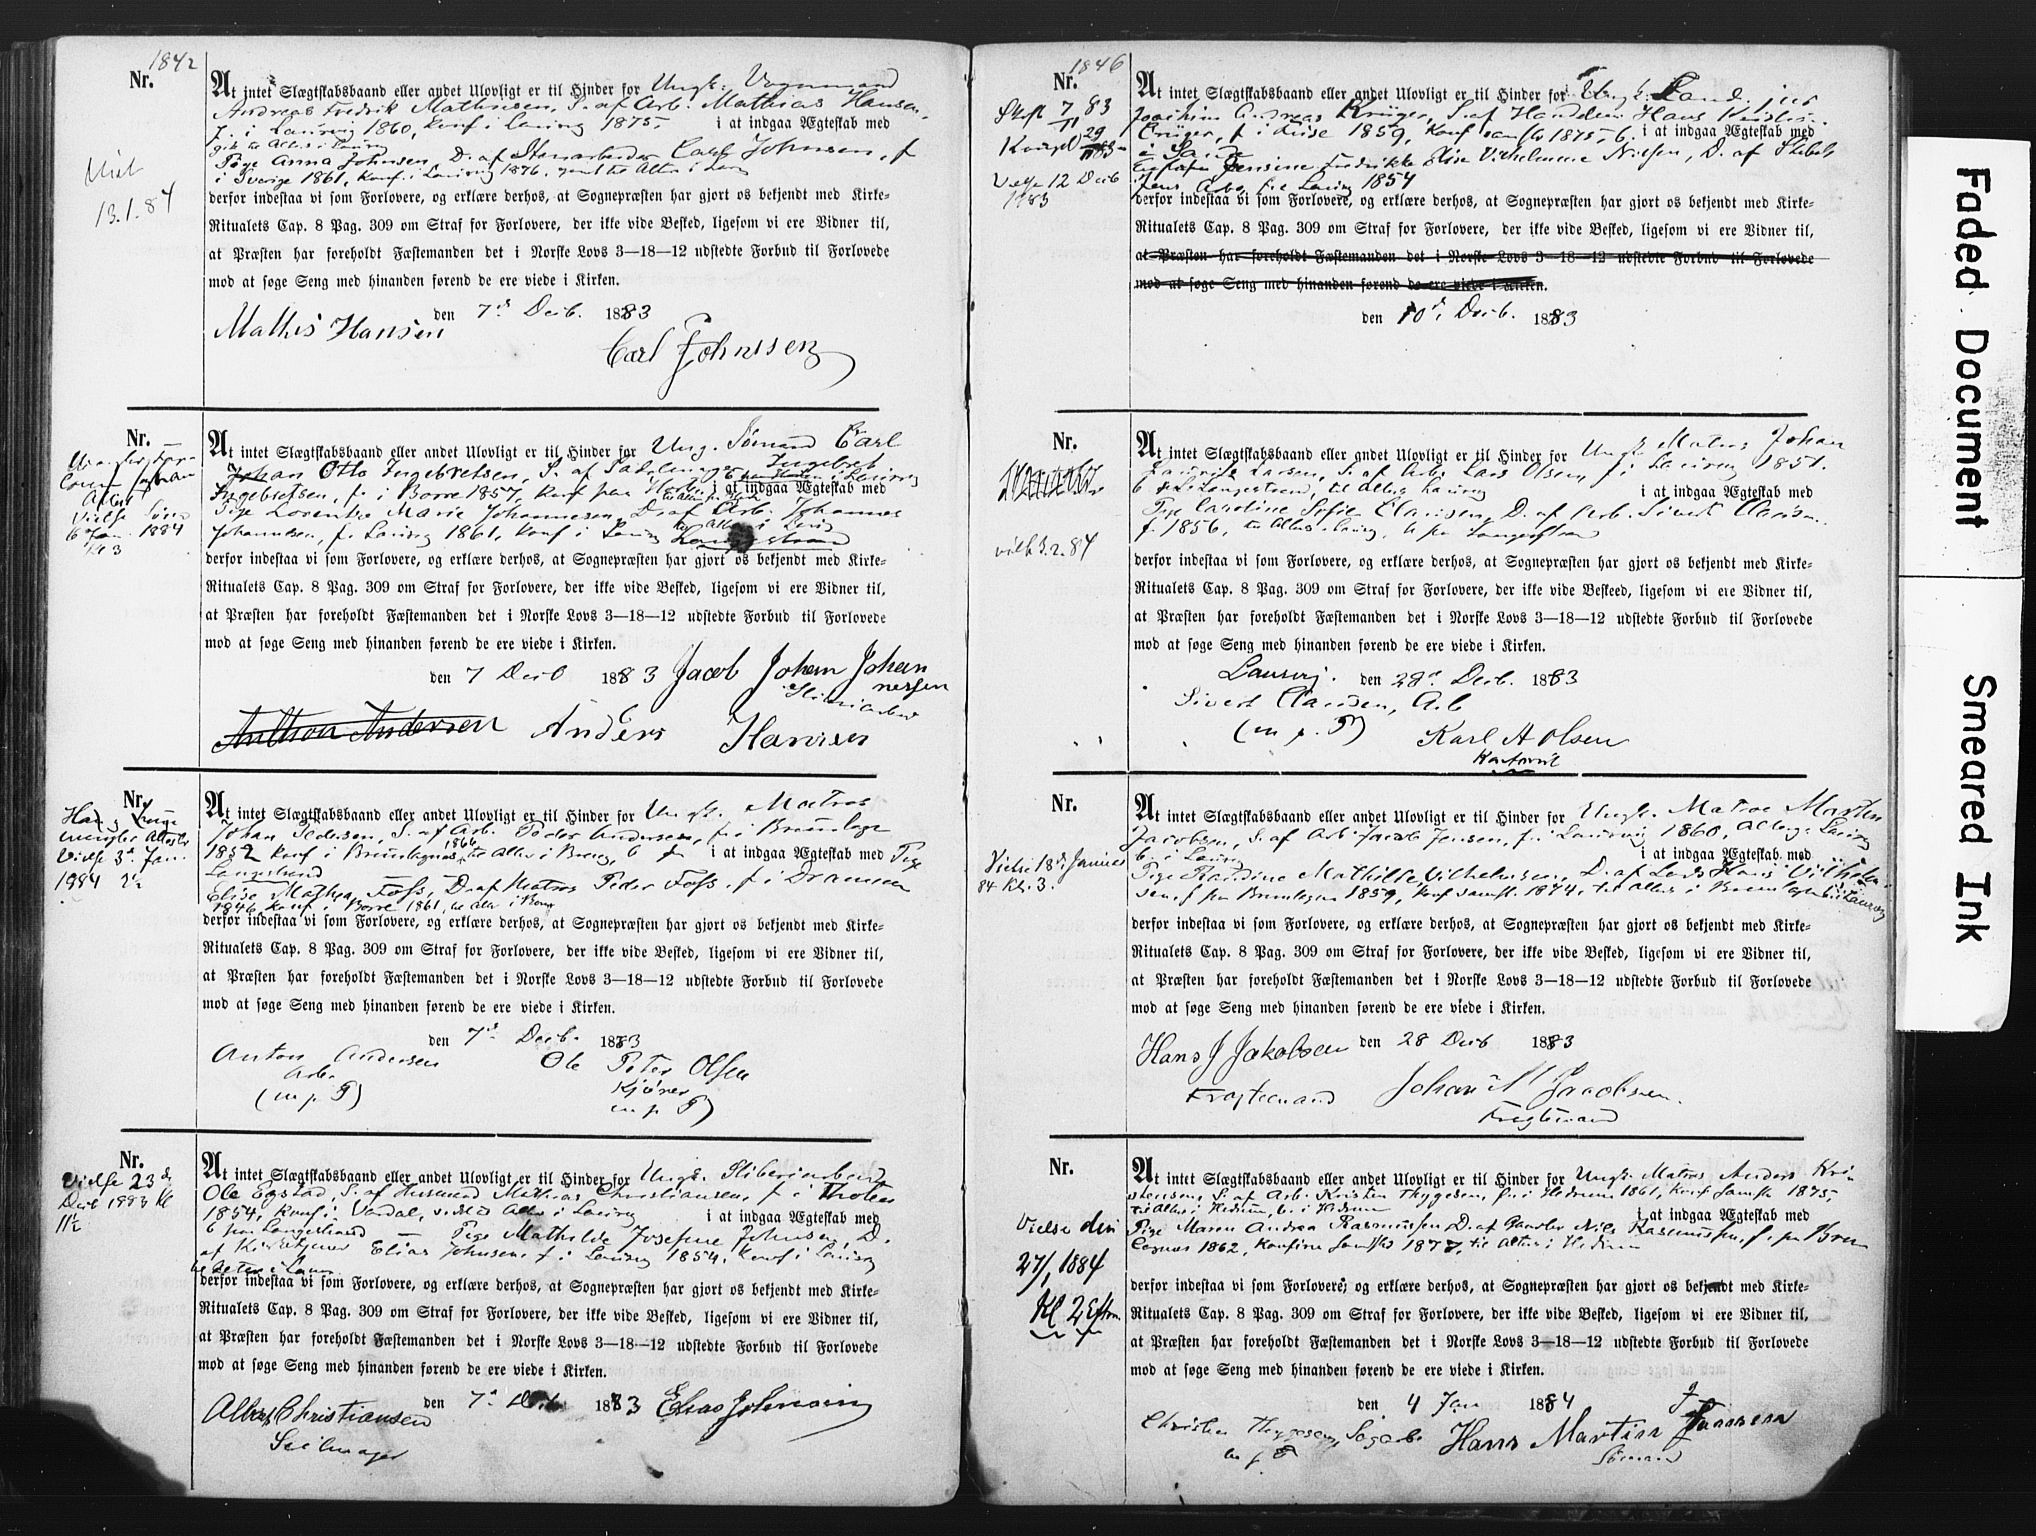 1842
Nr.
Viet
13.1.84
At intet Slægtskabsbaand eller andet Ulovligt er til Hinder for Ungk. Vognmand
Andreas Fredrik Mathisen, S. af Arb. Mathias Hansen,
f. i Laurvig 1860, konf i Laurvig 1875, i at indgaa Ægteskab med
Pige Anna Johnsen, D. af Stenarbeider Carl Johnsen, f
i Sverige 1861, konf. i Laurvig 1876,
derfor indestaa vi som Forlovere, og erklære derhos, at Sognepræsten har gjort os bekjendt med Kirke-
Ritualets Cap. 8 Pag. 309 om Straf for Forlovere, der ikke vide Besked, ligesom vi ere Vidner til,
at Præsten har foreholdt Fæstemanden det i Norske Lovs 3—18—12 udstedte Forbud til Forlovede
mod at søge Seng med hinanden førend de ere viede i Kirken.
den 7de Decb. 1883
Mathis Hansen
Carl Johnssen
Nr.
Vielse
6 Jan. 1884
Kl 3
At intet Slægtskabsbaand eller andet Ulovligt er til Hinder for Ungk. Sømand Carl
Johan Otto Ingebretsen, S. af Ingebret
Ingebretsen, f. i Borre 1857, konf paa i at indgaa Ægteskab med
Pige Lorentze Marie Johannesen, D. af Arb. Johannes
Johannesen, f. Laurvig 1861, konf i
derfor indestaa vi som Forlovere, og erklære derhos, at Sognepræsten har gjort os bekjendt med Kirke-
Ritualets Cap. 8 Pag. 309 om Straf for Forlovere, der ikke vide Besked, ligesom vi ere Vidner til,
at Præsten har foreholdt Fæstemanden det i Norske Lovs 3—18—12 udstedte Forbud til Forlovede
mod at søge Seng med hinanden førend de ere viede i Kirken.
den 7 Decb 1883 Jacob Johan Johan
nessen
Anthon Andersen Anders Hansen
Nr.
Vielse 3de Jan.
1884
At intet Slægtskabsbaand eller andet Ulovligt er til Hinder for Ungk. Matros
Johan Pedersen, S. af Arb. Peder Andersen, f. i Brunlanæs
1852 konf i Brunlanæs 1866, til Alters i i at indgaa Ægteskab med Pige
Langestrand
Elise Mathea Foss, D. af Matros Peder Foss, f i Drammen
1846, konf i Borre 1861, til Alter i
derfor indestaa vi som Forlovere, og erklære derhos, at Sognepræsten har gjort os bekjendt med Kirke-
Ritualets Cap. 8 Pag. 309 om Straf for Forlovere, der ikke vide Besked, ligesom vi ere Vidner til,
at Præsten har foreholdt Fæstemanden det i Norske Lovs 3—18—12 udstedte Forbud til Forlovede
mod at søge Seng med hinanden førend de ere viede i Kirken.
den 7de Decb. 1883
Anton Andersen Ole Peter Olsen
Arb. Kjører
(m. p. P) m p P)
Nr.
Vielse 23de
Decb 1883 Kl
11½
At intet Slægtskabsbaand eller andet Ulovligt er til Hinder for Ungk. Sliberiarbeid
Ole Egstad, S. af Husmand Mathias Christiansen, f i
1854, konf i Vardal, til Alters i Laurvig i at indgaa Ægteskab med
b paa Langestrand Pige Mathilde Josefine Johnsen, D.
af Kirketjener Elias Johnsen, f i Laurvig 1854, konf i Laurvig
derfor indestaa vi som Forlovere, og erklære derhos, at Sognepræsten har gjort os bekjendt med Kirke-
Ritualets Cap. 8 Pag. 309 om Straf for Forlovere, der ikke vide Besked, ligesom vi ere Vidner til,
at Præsten har foreholdt Fæstemanden det i Norske Lovs 3—18—12 udstedte Forbud til Forlovede
mod at søge Seng med hinanden førend de ere viede i Kirken.
den 7de Decb 1883 Elias Johnsen
Albert Christiansen
Seilmager
1846
Nr.
Skft 7/11 83
29/11 83
Vielse 12 Decb
1883
At intet Slægtskabsbaand eller andet Ulovligt er til Hinder for Ungk. Cand. jur
Joachim Andreas Krüger, S. af Handlm. Hans
Crüger, f. i 1859, konf samsts 1875, b. i at indgaa Ægteskab med
i Sande
Jensine Fredrikke Elise Vilhelmine Nielsen, D. af Skibsk
Jens 1854
derfor indestaa vi som Forlovere, og erklære derhos, at Sognepræsten har gjort os bekjendt med Kirke-
Ritualets Cap. 8 Pag. 309 om Straf for Forlovere, der ikke vide Besked, ligesom vi ere Vidner til,
at Præsten har foreholdt Fæstemanden det i Norske Lovs 3—18—12 udstedte Forbud til Forlovede
mod at søge Seng med hinanden førend de ere viede i Kirken.
den 10de Decb. 1883
Nr.
viet 3.2.84
At intet Slægtskabsbaand eller andet Ulovligt er til Hinder for Ungk Matros Johan
Lauritz Larsen, S. af Arb. Lars Olsen, f. i Laurvig 1851.
b. Langestrand, til Alters Laurvig i at indgaa Ægteskab med
Pige Caroline Sofie Clausen, D. af Arb. Sivert Clausen.
f. 1856, til Alters i Laurvig, b paa Langestrand
derfor indestaa vi som Forlovere, og erklære derhos, at Sognepræsten har gjort os bekjendt med Kirke-
Ritualets Cap. 8 Pag. 309 om Straf for Forlovere, der ikke vide Beskeed, ligesom vi ere Vidner til,
at Præsten har foreholdt Fæstemanden det i Norske Lovs 3—18—12 udstedte Forbud til Forlovede
mod at søge Seng med hinanden førend de ere viede i Kirken.
Laurvig. den 28de Decb. 1883
Sivert Clausen, Arb
(m. p. P) Karl A Olsen
Nr.
Vielse 18de Januar
84 Kl. 3.
At intet Slægtskabsbaand eller andet Ulovligt er til Hinder for Ungk. Matros Marthin
Jacobsen, S. af Arb. Jacob Jensen, f. i Laurvig 1860, Alters i Laurvig
b. i Laurvig i at indgaa Ægteskab med
Pige Randine Mathilde Vilhelmsen, D. af Lods Hans Vilhelm-
sen, f paa Brunlanæs 1859, konf samst. 1874, til Alters i Brunlanæs b. i Laurvig
derfor indestaa vi som Forlovere, og erklære derhos, at Sognepræsten har gjort os bekjendt med Kirke-
Ritualets Cap. 8 Pag. 309 om Straf for Forlovere, der ikke vide Besked, ligesom vi ere Vidner til,
at Præsten har foreholdt Fæstemanden det i Norske Lovs 3—18—12 udstedte Forbud til Forlovede
mod at søge Seng med hinanden førend de ere viede i Kirken.
Hans J Jakobsen den 28 Decb 1883
Fragtemand Johan M Jacobsen.
Fragtemand
Nr.
Vielse den
27/1 1884
Kl 2 Efterm.
At intet Slægtskabsbaand eller andet Ulovligt er til Hinder for Ungk. Matros Anders Kri-
stensen, S. af Arb. Kristen Thygesen, f. i Hedrum 1861, konf. samst 1875,
til Alters i Hedrum, b. i Hedrum i at indgaa Ægteskab med
Pige Maren Andrea Rasmussen D. af Gaardbr Nils Rasmussen, f. paa Brun-
lagnæs 1862, konfirm samsts 1877, til Alters i Hedrum
derfor indestaa vi som Forlovere, og erklære derhos, at Sognepræsten har gjort os bekjendt med Kirke-
Ritualets Cap. 8 Pag. 309 om Straf for Forlovere, der ikke vide Besked, ligesom vi ere Vidner til,
at Præsten har foreholdt Fæstemanden det i Norske Lovs 3—18—12 udstedte Forbud til Forlovede
mod at søge Seng med hinanden førend de ere viede i Kirken.
den 4 Jan 1884
Christen Thygesen, Sagarb. Hans Martin Hansen
m p P Sømand
Faded Document
Smeared Ink